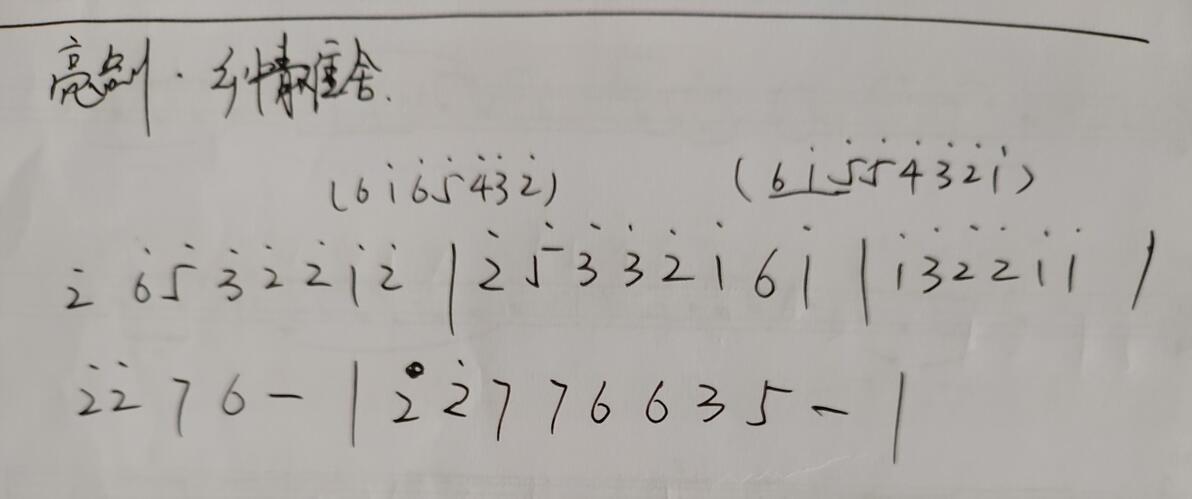 亮点 · 乡情难舍.
(6 i̇ 6̇ 5̇ 4̇ 3̇ 2̇) (6 i̇ 5̇ 5̇ 4̇ 3̇ 2̇ i̇)
2̇ 6̇ 5̇ 3̇ 2̇ 2̇ i̇ 2̇ | 2̇ 5̇ 3̇ 3̇ 2̇ i̇ 6 i̇ | i̇ 3̇ 2̇ 2̇ i̇ i̇ |
2̇ 2̇ 7 6 - | 2̇ 2̇ 7 7 6 6 3 5 - |